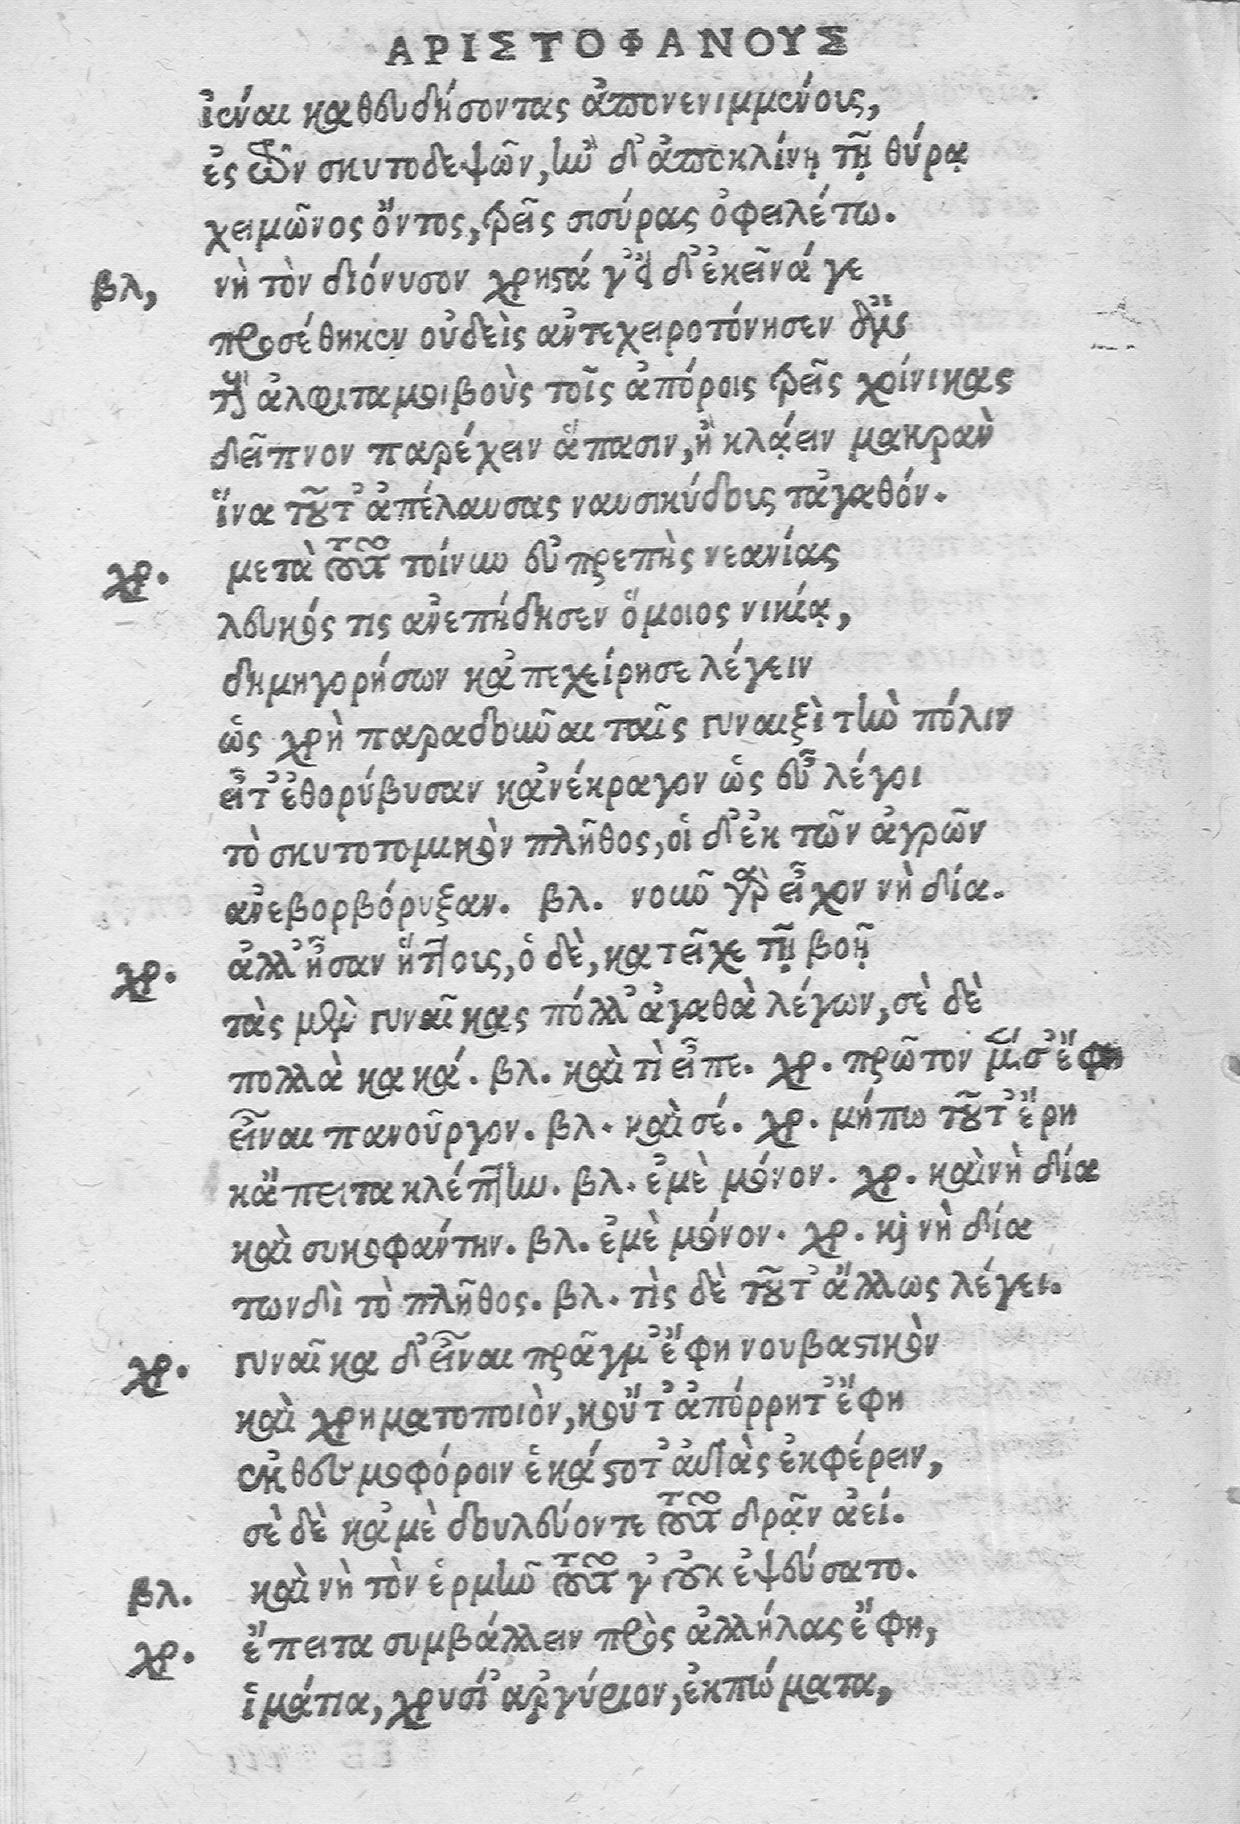 ΑΡΙΣΤΟΦΑΝΟΥΣ
ἰέναι καθευδήσοντας ἀπονενιμμένοις,
ἐς τῶν σκυτοδεψῶν, ἢν δ' ἀποκλίνῃ τῇ θύρᾳ
χειμῶνος ὄντος, τρεῖς σισύρας ὀφειλέτω.
βλ, νὴ τὸν διόνυσον χρηστά γ' εἰ δ' ἐκεῖνά γε
προσέθηκεν οὐδεὶς ἀντεχειροτόνησεν
τοὺς ἀλφιταμοιβοὺς τοῖς ἀπόροις τρεῖς χοίνικας
δεῖπνον παρέχειν ἅπασιν, ἢ κλᾴειν μακρὰν
ἵνα τοῦτ' ἀπέλαυσας ναυσικύδοις τἀγαθόν.
χρ. μετὰ τοῦτο τοίνυν εὐπρεπὴς νεανίας
λευκός τις ἀνεπήδησεν ὅμοιος νικίᾳ,
δημηγορήσων κἀπεχείρησε λέγειν
ὡς χρὴ παραδοῦναι ταῖς γυναιξὶ τὴν πόλιν
εἶτ' ἐθορύβυσαν κἀνέκραγον ὡς εὖ λέγοι
τὸ σκυτοτομικὸν πλῆθος, οἱ δ' ἐκ τῶν ἀγρῶν
ἀνεβορβόρυξαν. βλ. νοῦν γὰρ εἶχον νὴ δία.
χρ. ἀλλ' ἦσαν ἥττοις, ὁ δὲ, κατεῖχε τῇ βοῇ
τὰς μὲν γυναῖκας πόλλ' ἀγαθὰ λέγων, σὲ δὲ
πολλὰ κακά. βλ. καὶ τὶ εἶπε. χρ. πρῶτον μέν σ' ἔφη
εἶναι πανοῦργον. βλ. καὶ σέ. χρ. μήπω τοῦτ' ἔρη
κἄπειτα κλέπτην. βλ. ἐμὲ μόνον. χρ. καὶ νὴ δία
καὶ συκοφάντην. βλ. ἐμὲ μόνον. χρ. καὶ νὴ δία
τωνδὶ τὸ πλῆθος. βλ. τὶς δὲ τοῦτ' ἄλλως λέγει.
χρ. γυναῖκα δ' εἶναι πρᾶγμ' ἔφη νουβαστικὸν
καὶ χρηματοποιὸν, κοὔτ' ἀπόρρητ' ἔφη
ἐκ θεσμοφόροιν ἑκάστοτ' αὐτὰς ἐκφέρειν,
σὲ δὲ κἀμὲ δουλεύοντε τοῦτο δρᾷν ἀεί.
βλ. καὶ νὴ τὸν ἑρμῆν τοῦτο γ' οὐκ ἐψεύσατο.
χρ. ἔπειτα συμβάλλειν πρὸς ἀλλήλας ἔφη,
ἱμάτια, χρυσί' ἀργύριον, ἐκπώματα,